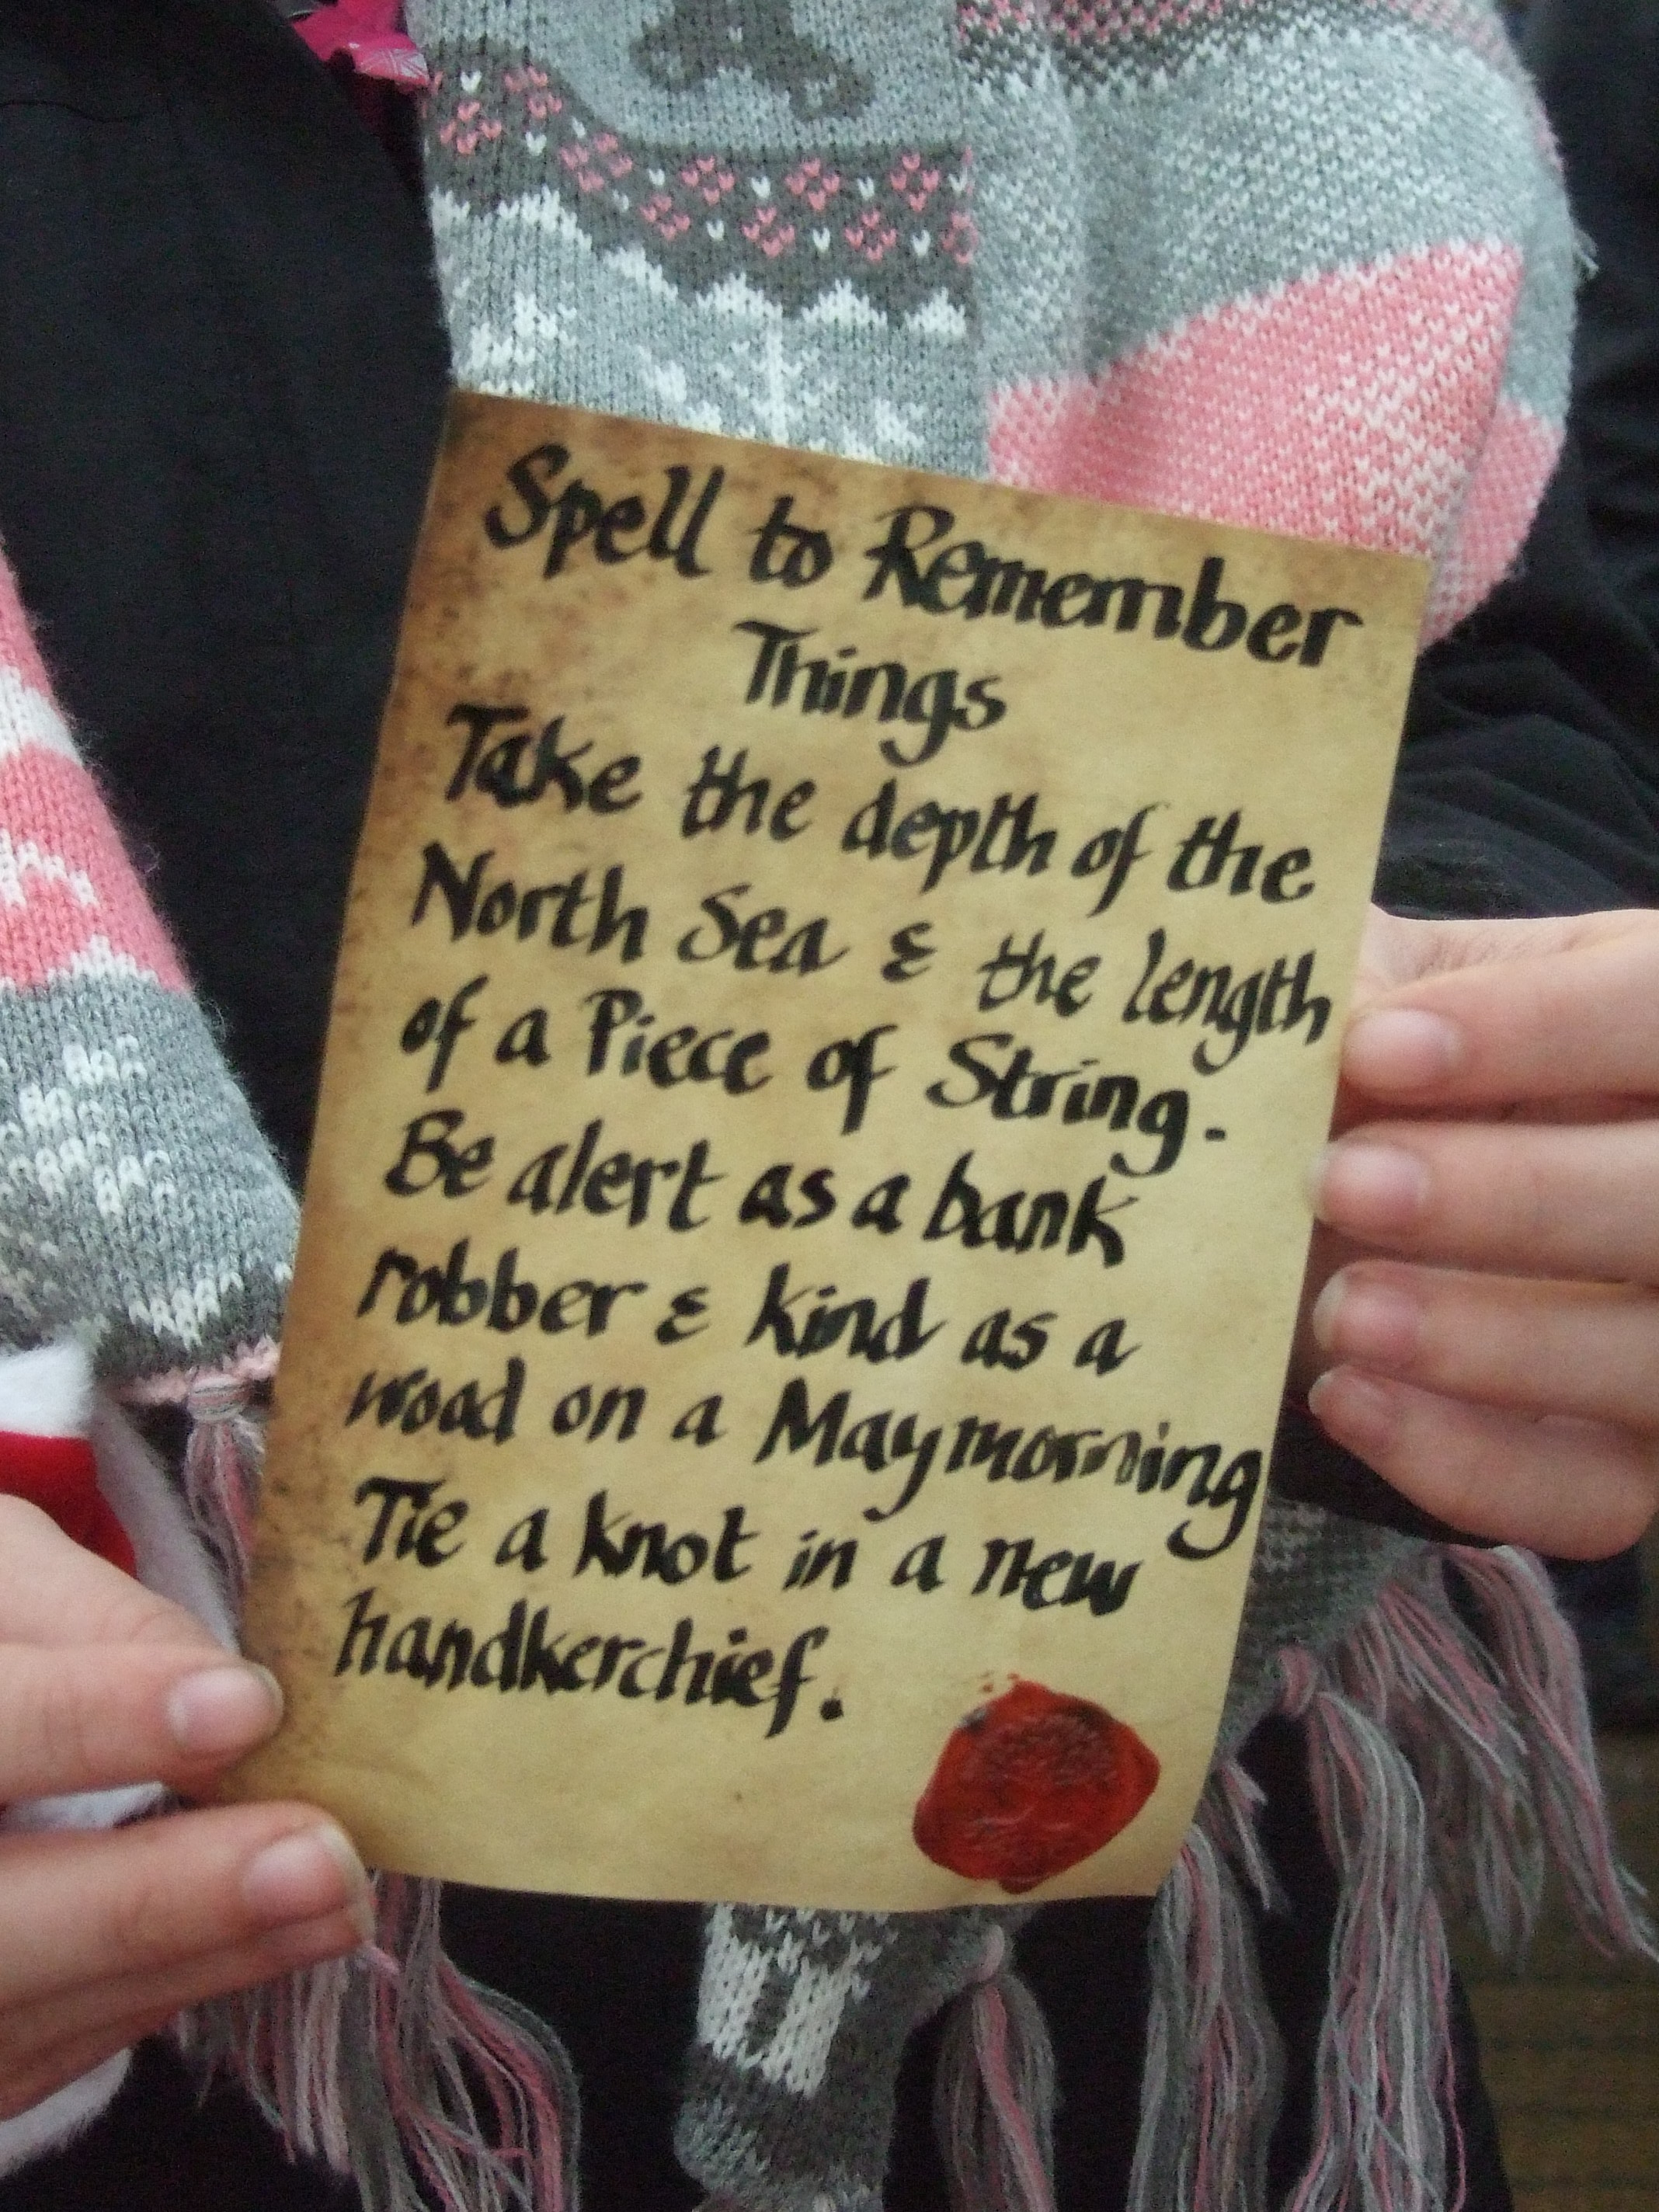 Spell to Remember
Things
Take the depth of the
North Sea & the length
of a Piece of String.
Be alert as a bank
robber & kind as a
wood on a May morning
Tie a knot in a new
handkerchief.